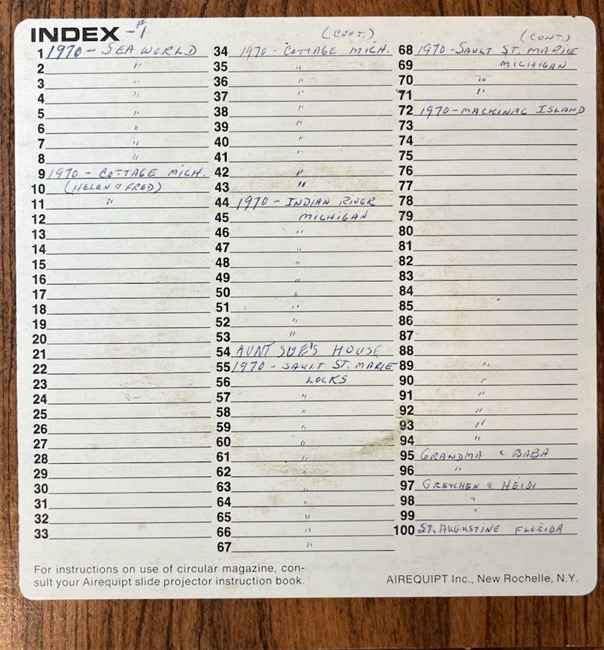 INDEX - #1
1 1970 - SEA WORLD
2 "
3 "
4 "
5 "
6 "
7 "
8 "
9 1970 - COTTAGE MICH.
10 (HELEN & FRED)
11 "
12
13
14
15
16
17
18
19
20
21
22
23
24
25
26
27
28
29
30
31
32
33
(CONT.)
34 1970 - COTTAGE MICH.
35 "
36 "
37 "
38 "
39 "
40 "
41 "
42 "
43 "
44 1970 - INDIAN RIVER
45 MICHIGAN
46 "
47 "
48 "
49 "
50 "
51 "
52 "
53 "
54 AUNT SUE'S HOUSE
55 1970 - SAULT ST. MARIE
56 LOCKS
57 "
58 "
59 "
60 "
61 "
62 "
63 "
64 "
65 "
66 "
67 "
(CONT.)
68 1970 - SAULT ST. MARIE
69 MICHIGAN
70 "
71 "
72 1970 - MACKINAC ISLAND
73
74
75
76
77
78
79
80
81
82
83
84
85
86
87
88
89 "
90 "
91 "
92 "
93 "
94 "
95 GRANDMA & BABA
96 "
97 GRETCHEN & HEIDI
98 "
99 "
100 ST. AUGUSTINE FLORIDA
For instructions on use of circular magazine, con-
sult your Airequipt slide projector instruction book.
AIREQUIPT Inc., New Rochelle, N.Y.